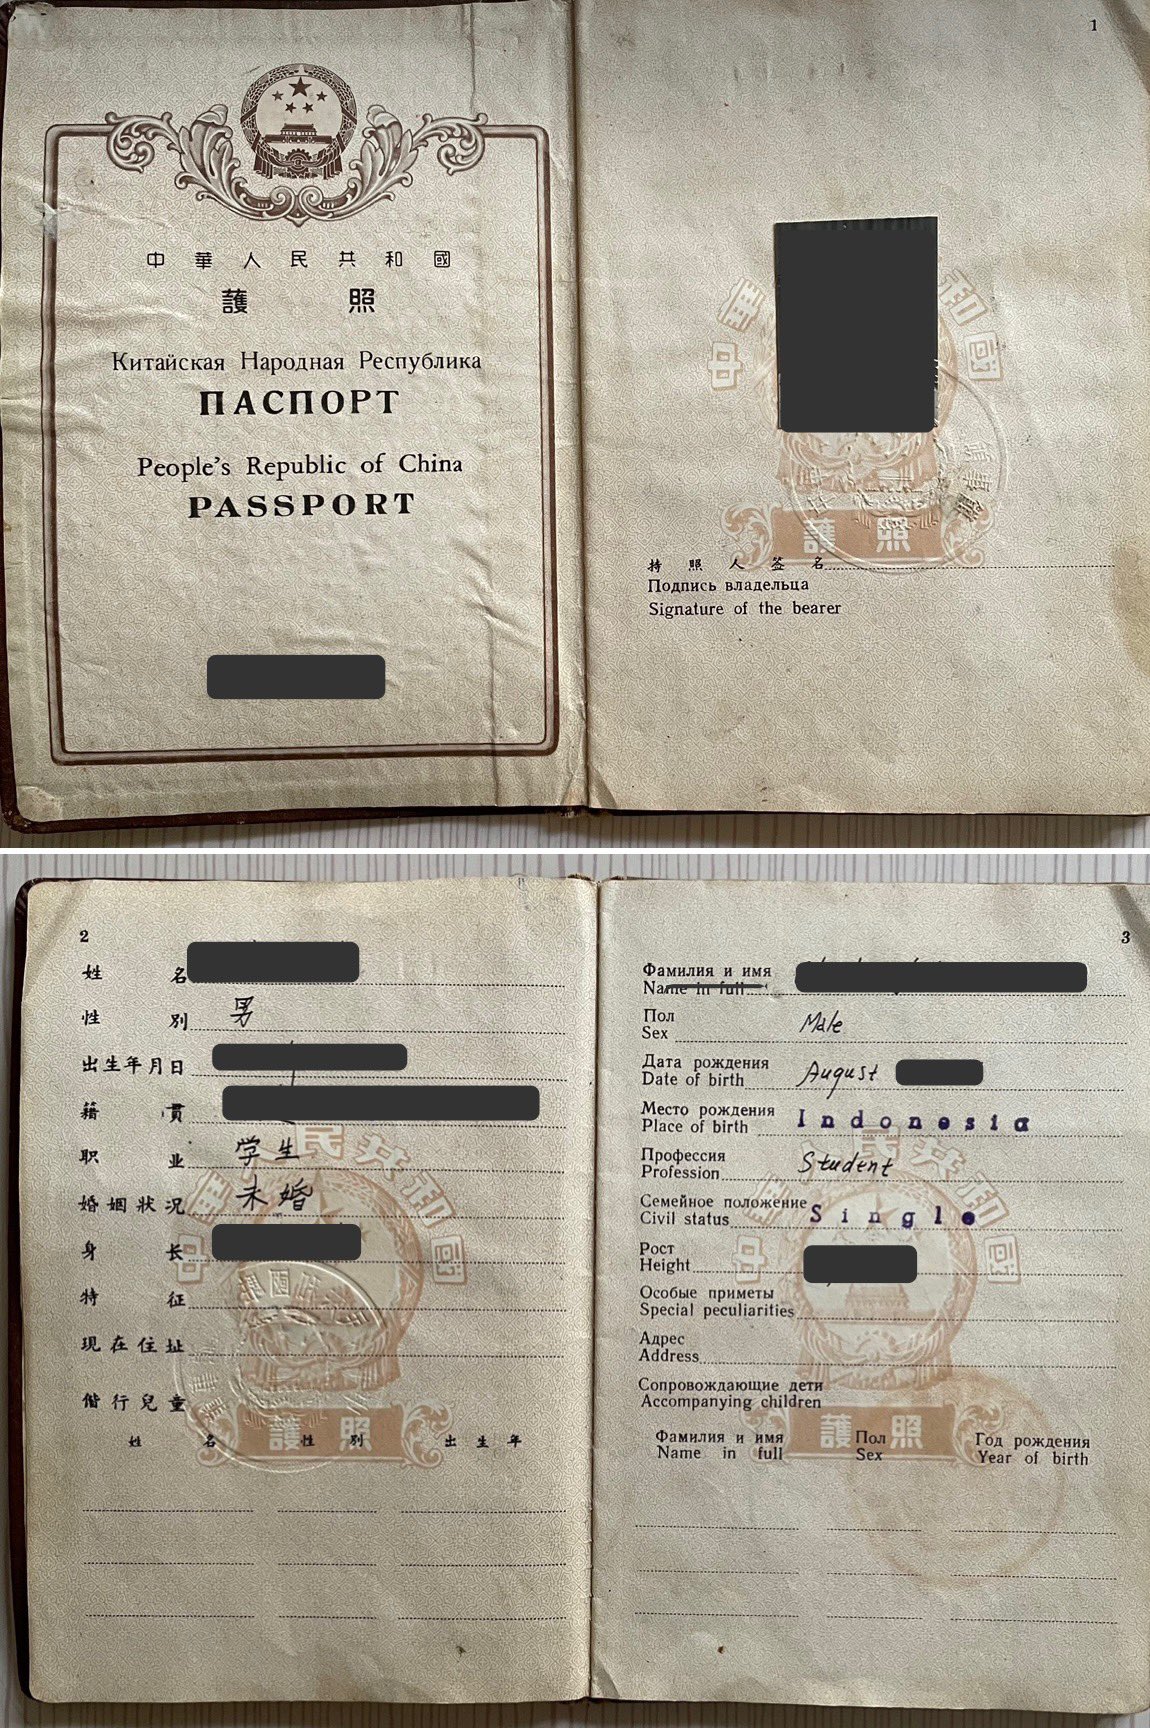 中華人民共和國
護照
Китайская Народная Республика
ПАСПОРТ
People's Republic of China
PASSPORT
1
中華人民共和國
護照
持照人签名
Подпись владельца
Signature of the bearer
2
姓名
性別 男
出生年月日
籍貫
职业 学生
婚姻狀况 未婚
身长
特征
现在住址
偕行兒童
姓名 性別 出生年
中華人民共和國
護照
3
Фамилия и имя
Name in full
Пол
Sex Male
Дата рождения
Date of birth August
Место рождения
Place of birth Indonesia
Профессия
Profession Student
Семейное положение
Civil status Single
Рост
Height
Особые приметы
Special peculiarities
Адрес
Address
Сопровождающие дети
Accompanying children
Фамилия и имя Пол Год рождения
Name in full Sex Year of birth
中華人民共和國
護照